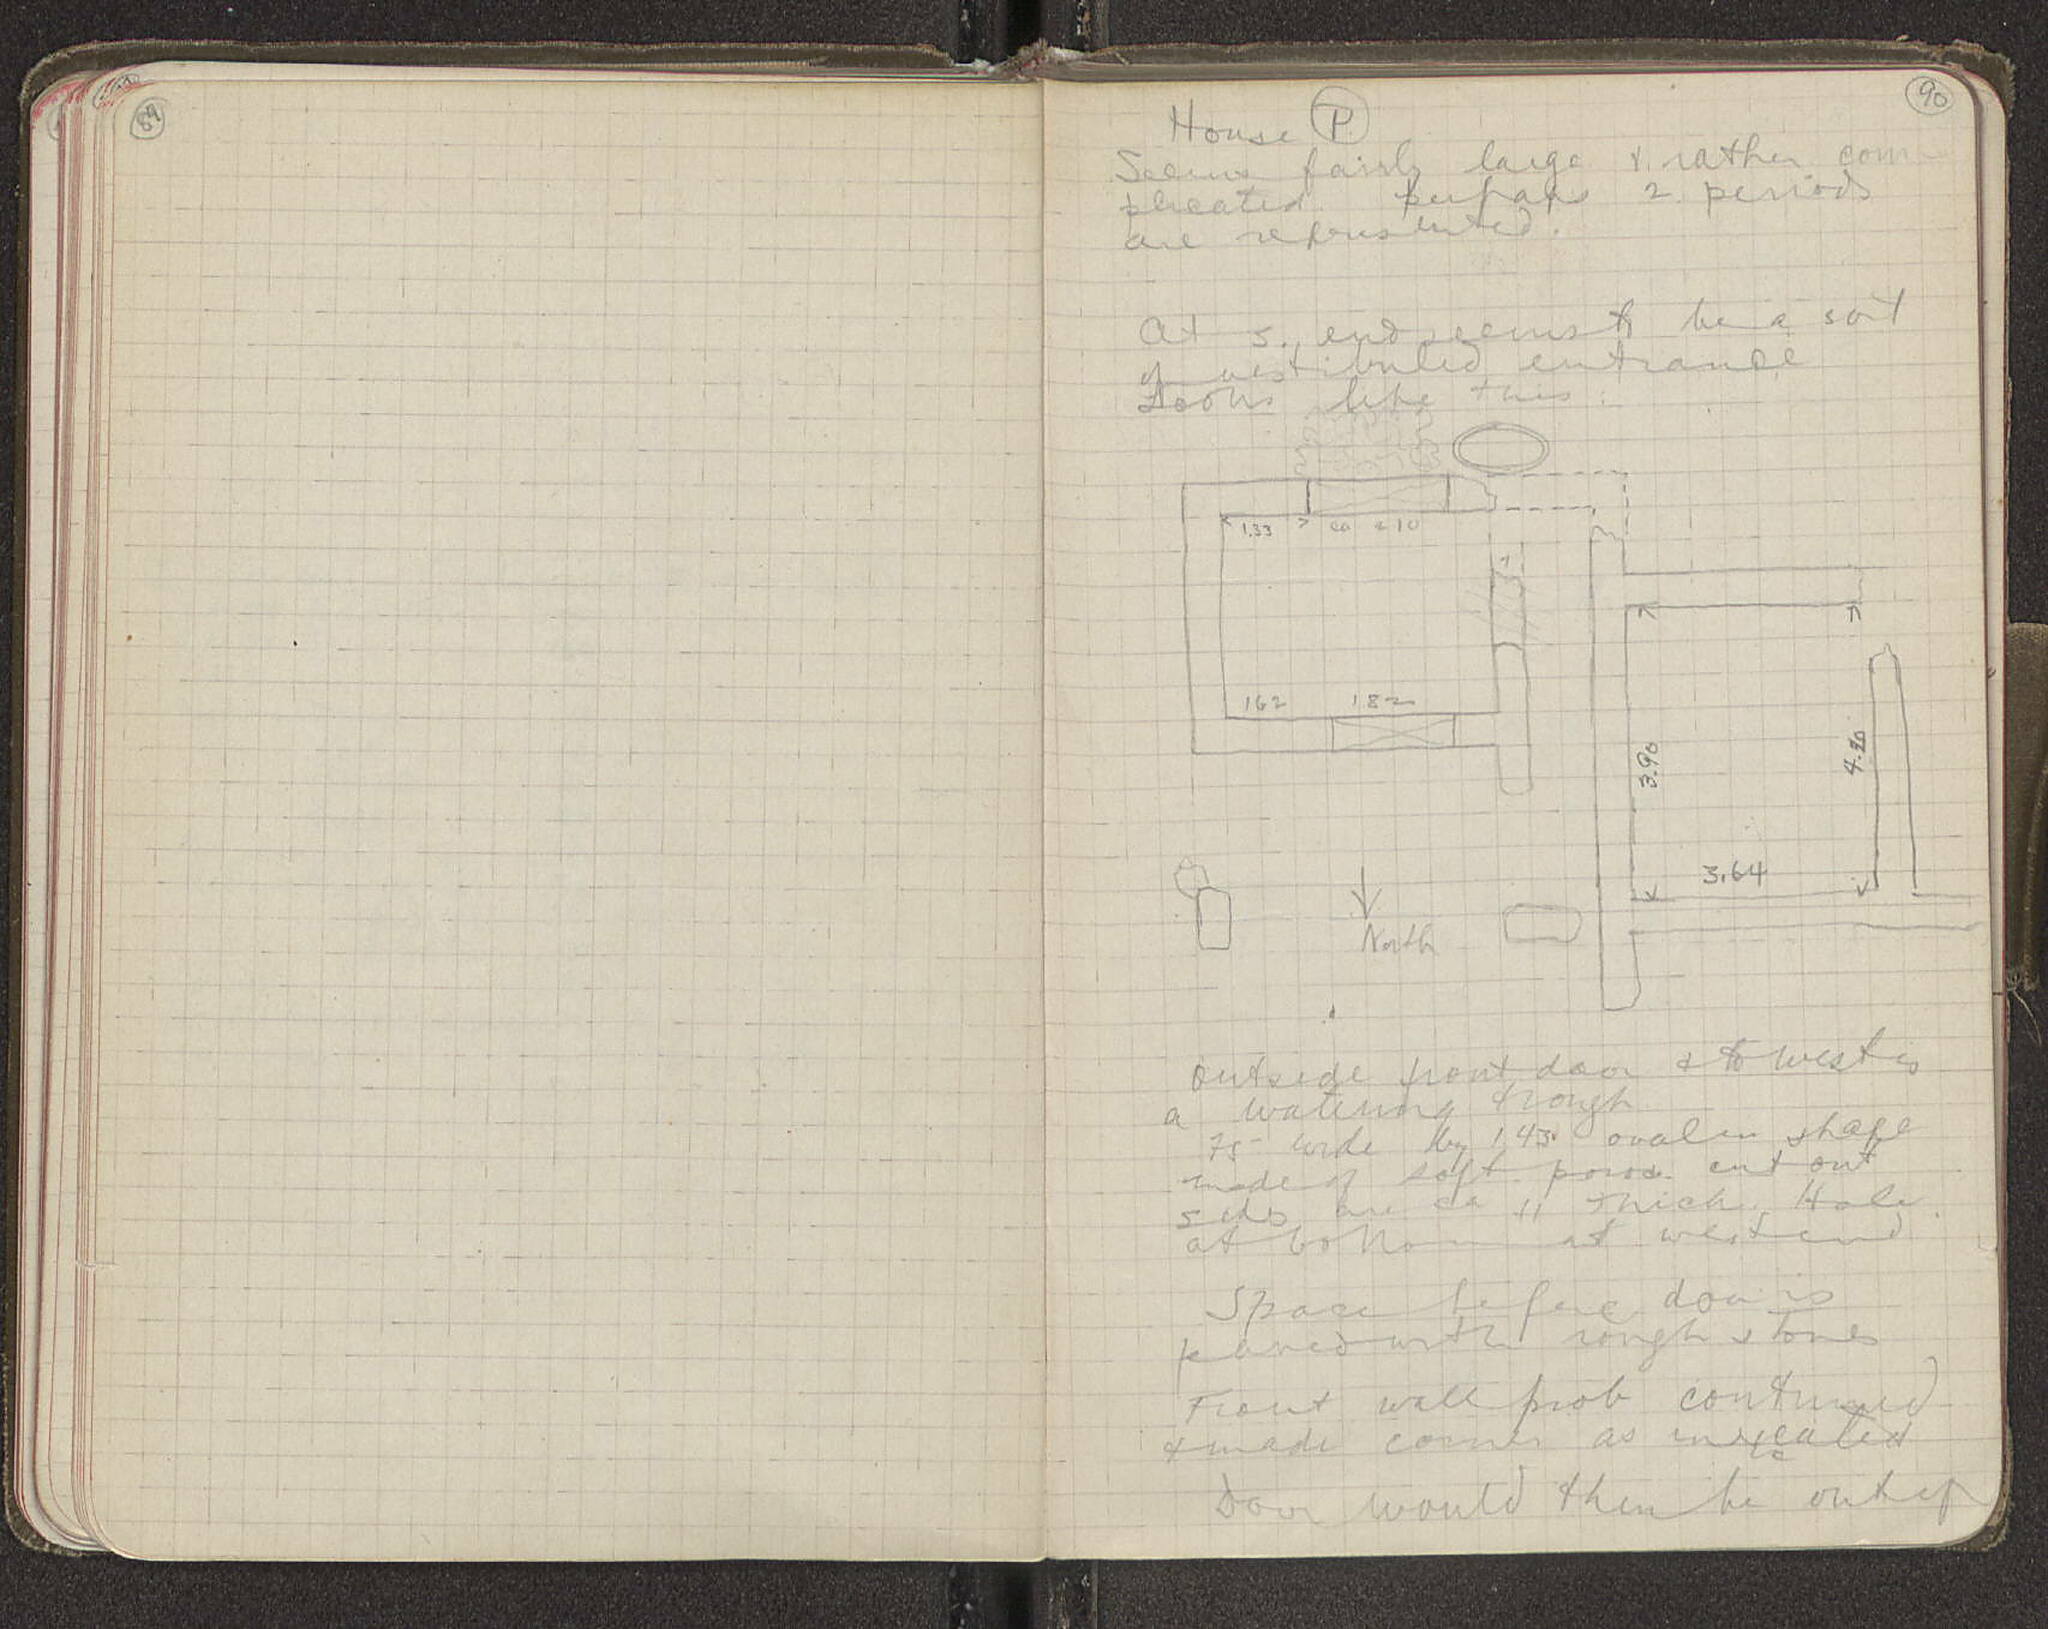 89
90
House P
Seems fairly large & rather com-
plicated. perhaps 2 periods
are represented.
At s. end seems to be a sort
of vestibuled entrance
Looks like this:
1.33 ca 210
162 182
3.90
4.20
3.64
North
Outside front door & to west is
a watering trough
75 wide by 1,43. oval in shape
made of soft poros. cut out
sides are ca 11 thick. Hole
at bottom at west end
Space before door is
paved with rough stones
Front wall prob continued
& made corner as indicated
Door would then be out of